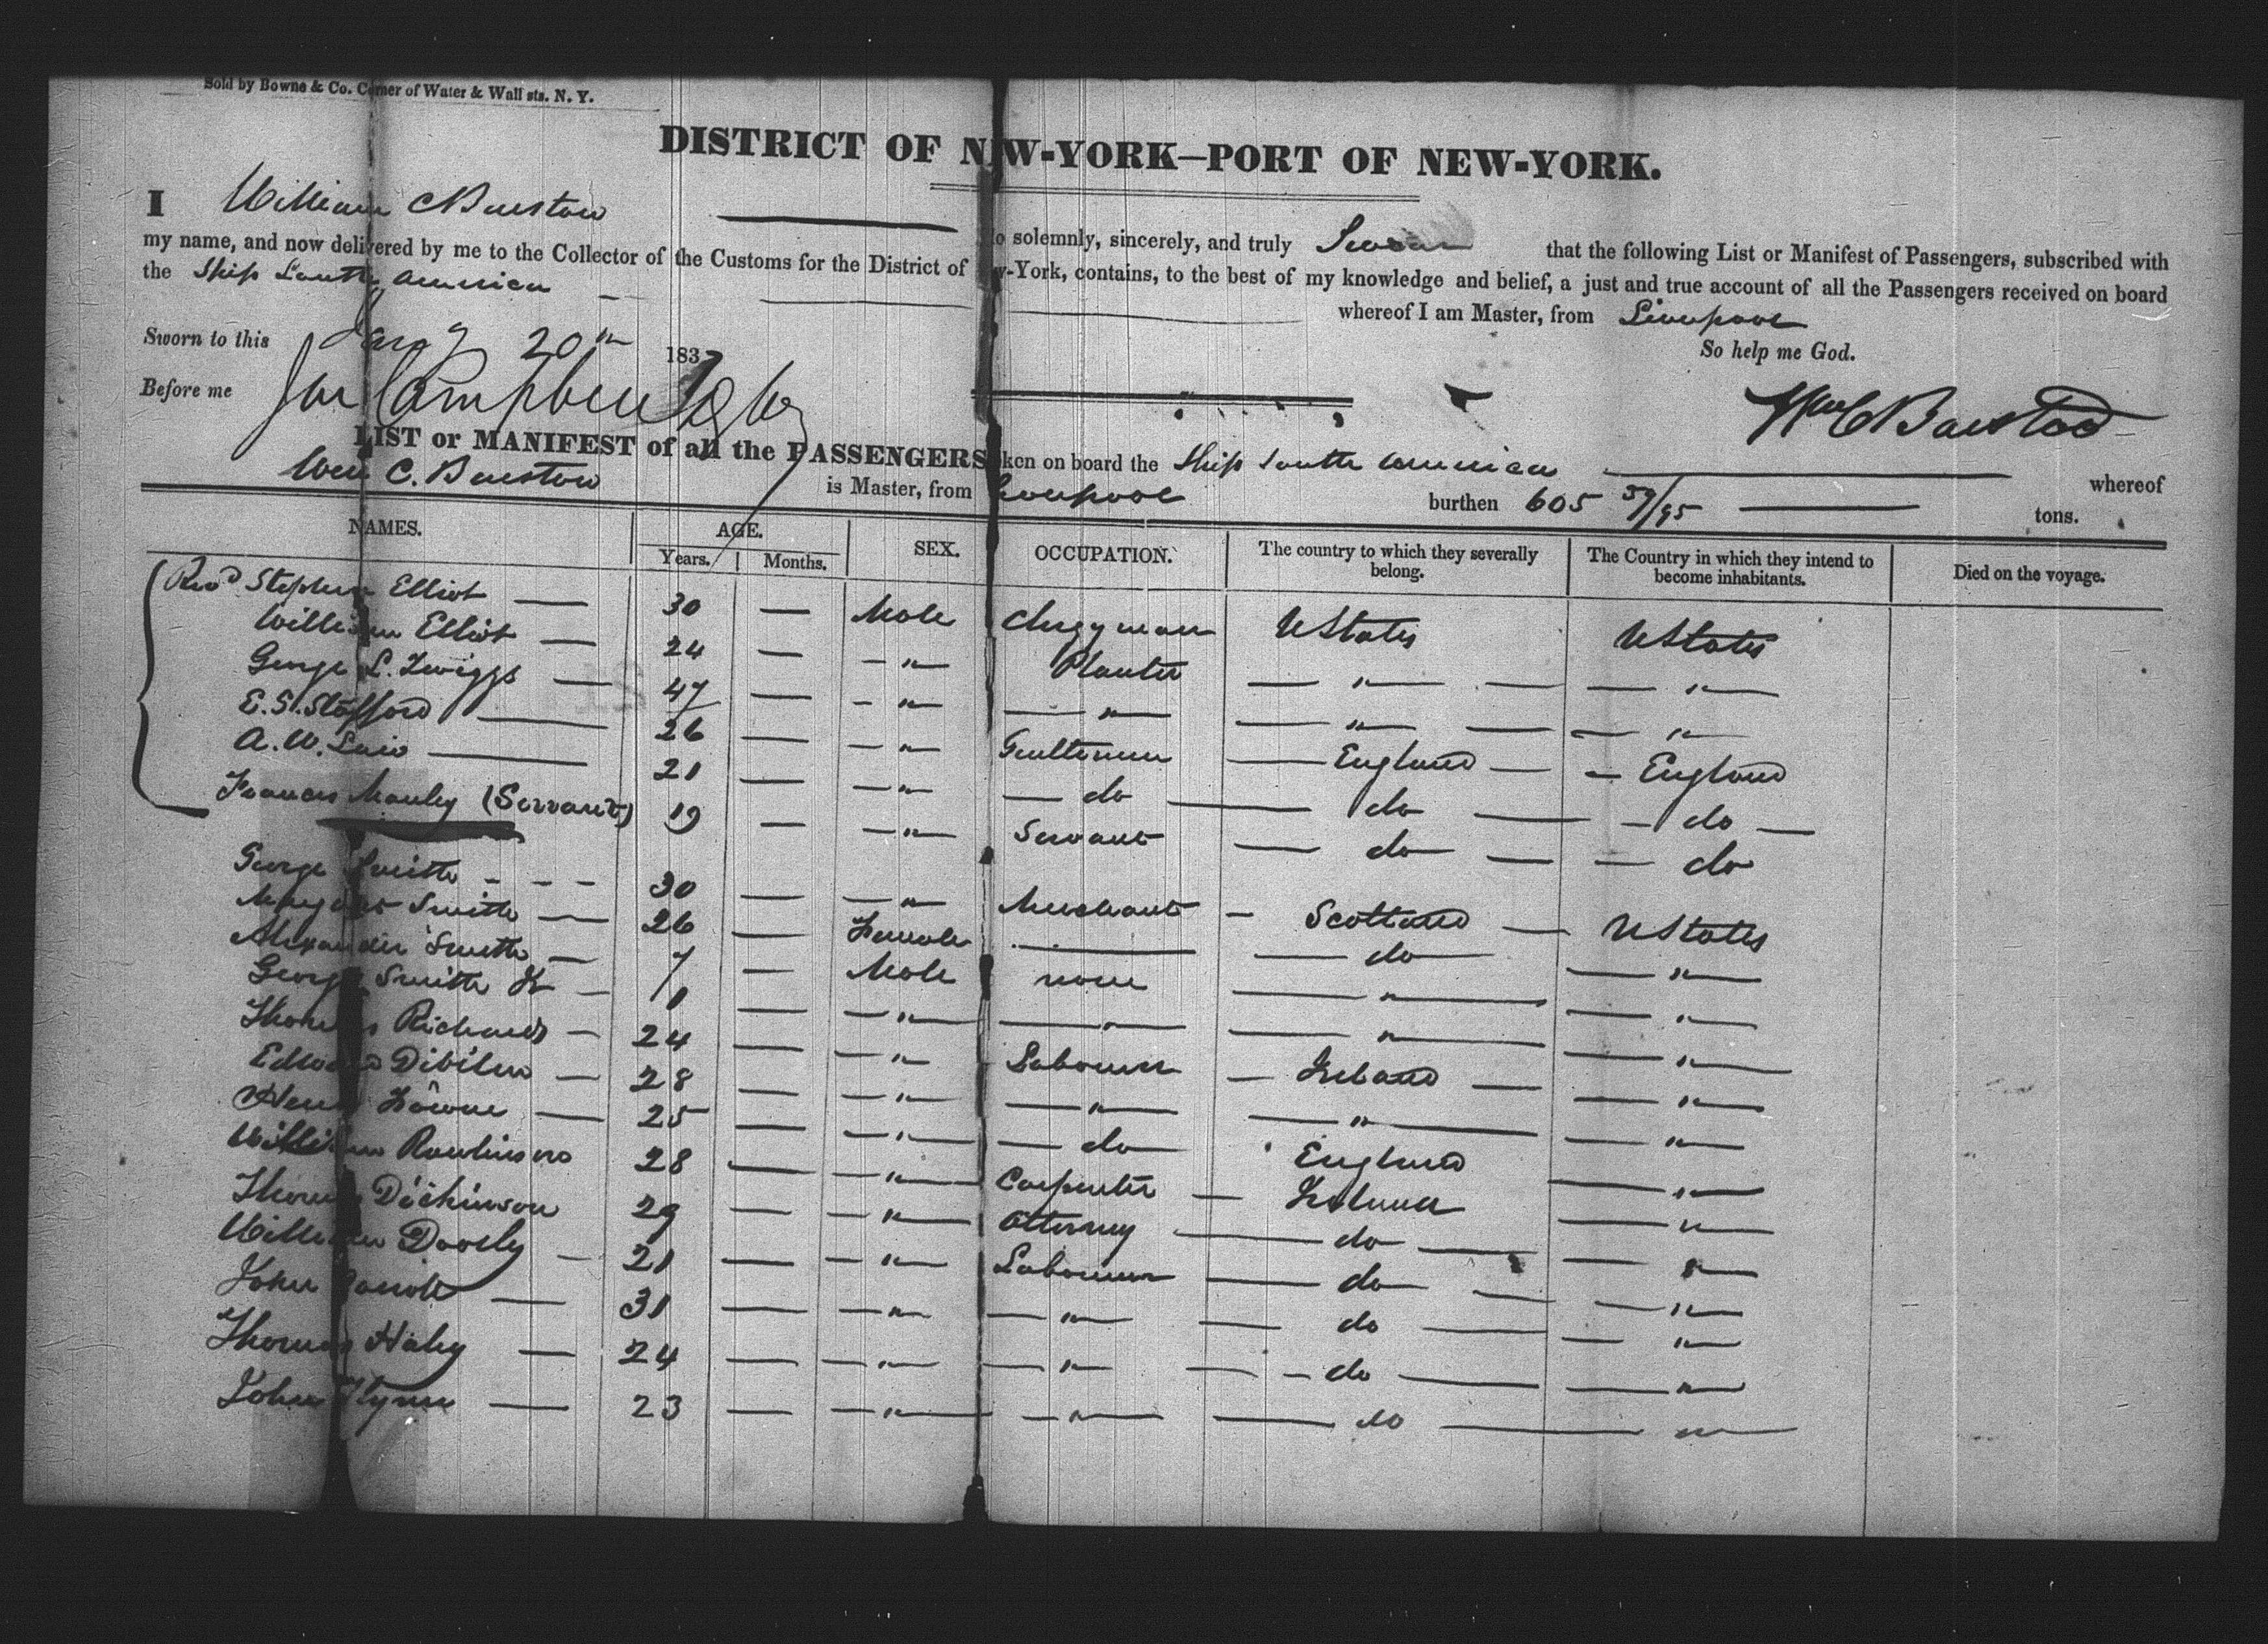 Sold by Bowne & Co. Corner of Water & Wall sts. N. Y.
DISTRICT OF NEW-YORK—PORT OF NEW-YORK.
I William C Barstow do solemnly, sincerely, and truly Swear that the following List or Manifest of Passengers, subscribed with
my name, and now delivered by me to the Collector of the Customs for the District of New-York, contains, to the best of my knowledge and belief, a just and true account of all the Passengers received on board
the Ship South America whereof I am Master, from Liverpool
So help me God.
Sworn to this Jany 20th 1837
Before me Campbell
Wm C Barstow
LIST or MANIFEST of all the PASSENGERS taken on board the Ship South America whereof
Wm C. Barstow is Master, from Liverpool burthen 605 59/95 tons.
NAMES. AGE. Years. Months. SEX. OCCUPATION. The country to which they severally belong. The Country in which they intend to become inhabitants. Died on the voyage.
Revd Stephen Elliot — 30 — Male Clergyman UStates UStates
William Elliot — 24 — " Planter " "
George L. Twiggs — 47 — " " " "
E. S. Stafford — 26 — " Gentleman England England
A. W. — 21 — " do do do
Frances Manley (Servant) 19 — " Servant do do
George Smith - - - 30 — " Merchant Scotland UStates
Margaret Smith — 26 — Female — do "
Alexander Smith — 7 — Male none " "
George Smith Jr — 1 — " " " "
Thomas Richards — 24 — " Labourer Ireland "
Edward — 28 — " " " "
Henry — 25 — " do England "
William Rawlinson 28 — " Carpenter Ireland "
Thomas Dickinson 29 — " Attorney do "
William Doorly — 21 — " Labourer do "
John — 31 — " " do "
Thomas Haley — 24 — " " do "
John Flynn — 23 — " " do "